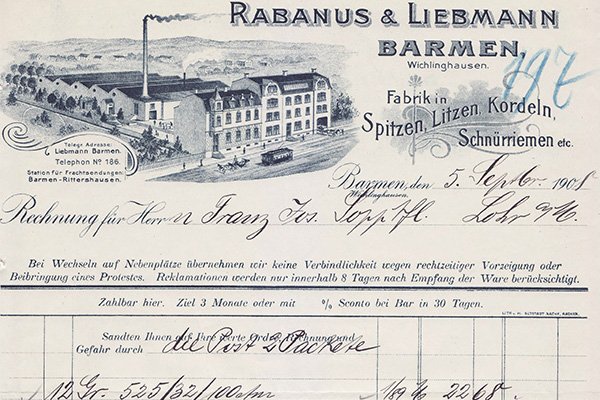 RABANUS & LIEBMANN
BARMEN,
Wichlinghausen.
Fabrik in
Spitzen, Litzen, Kordeln,
Schnürriemen etc.
Telegr. Adresse:
Liebmann Barmen.
Telephon No 186.
Station für Frachtsendungen:
Barmen-Rittershausen.
Barmen, den 5. Septbr. 1908
Wichlinghausen
Rechnung für Herrn Franz Jos. Sopp Nfl. Lohr a/M.
Bei Wechseln auf Nebenplätze übernehmen wir keine Verbindlichkeit wegen rechtzeitiger Vorzeigung oder
Beibringung eines Protestes. Reklamationen werden nur innerhalb 8 Tagen nach Empfang der Ware berücksichtigt.
Zahlbar hier. Ziel 3 Monate oder mit % Sconto bei Bar in 30 Tagen.
Sandten Ihnen auf Ihre werte Order, Rechnung und
Gefahr durch die Post 2 Packete
12 Gr. 525/32/100 ctm 189 % 22 68